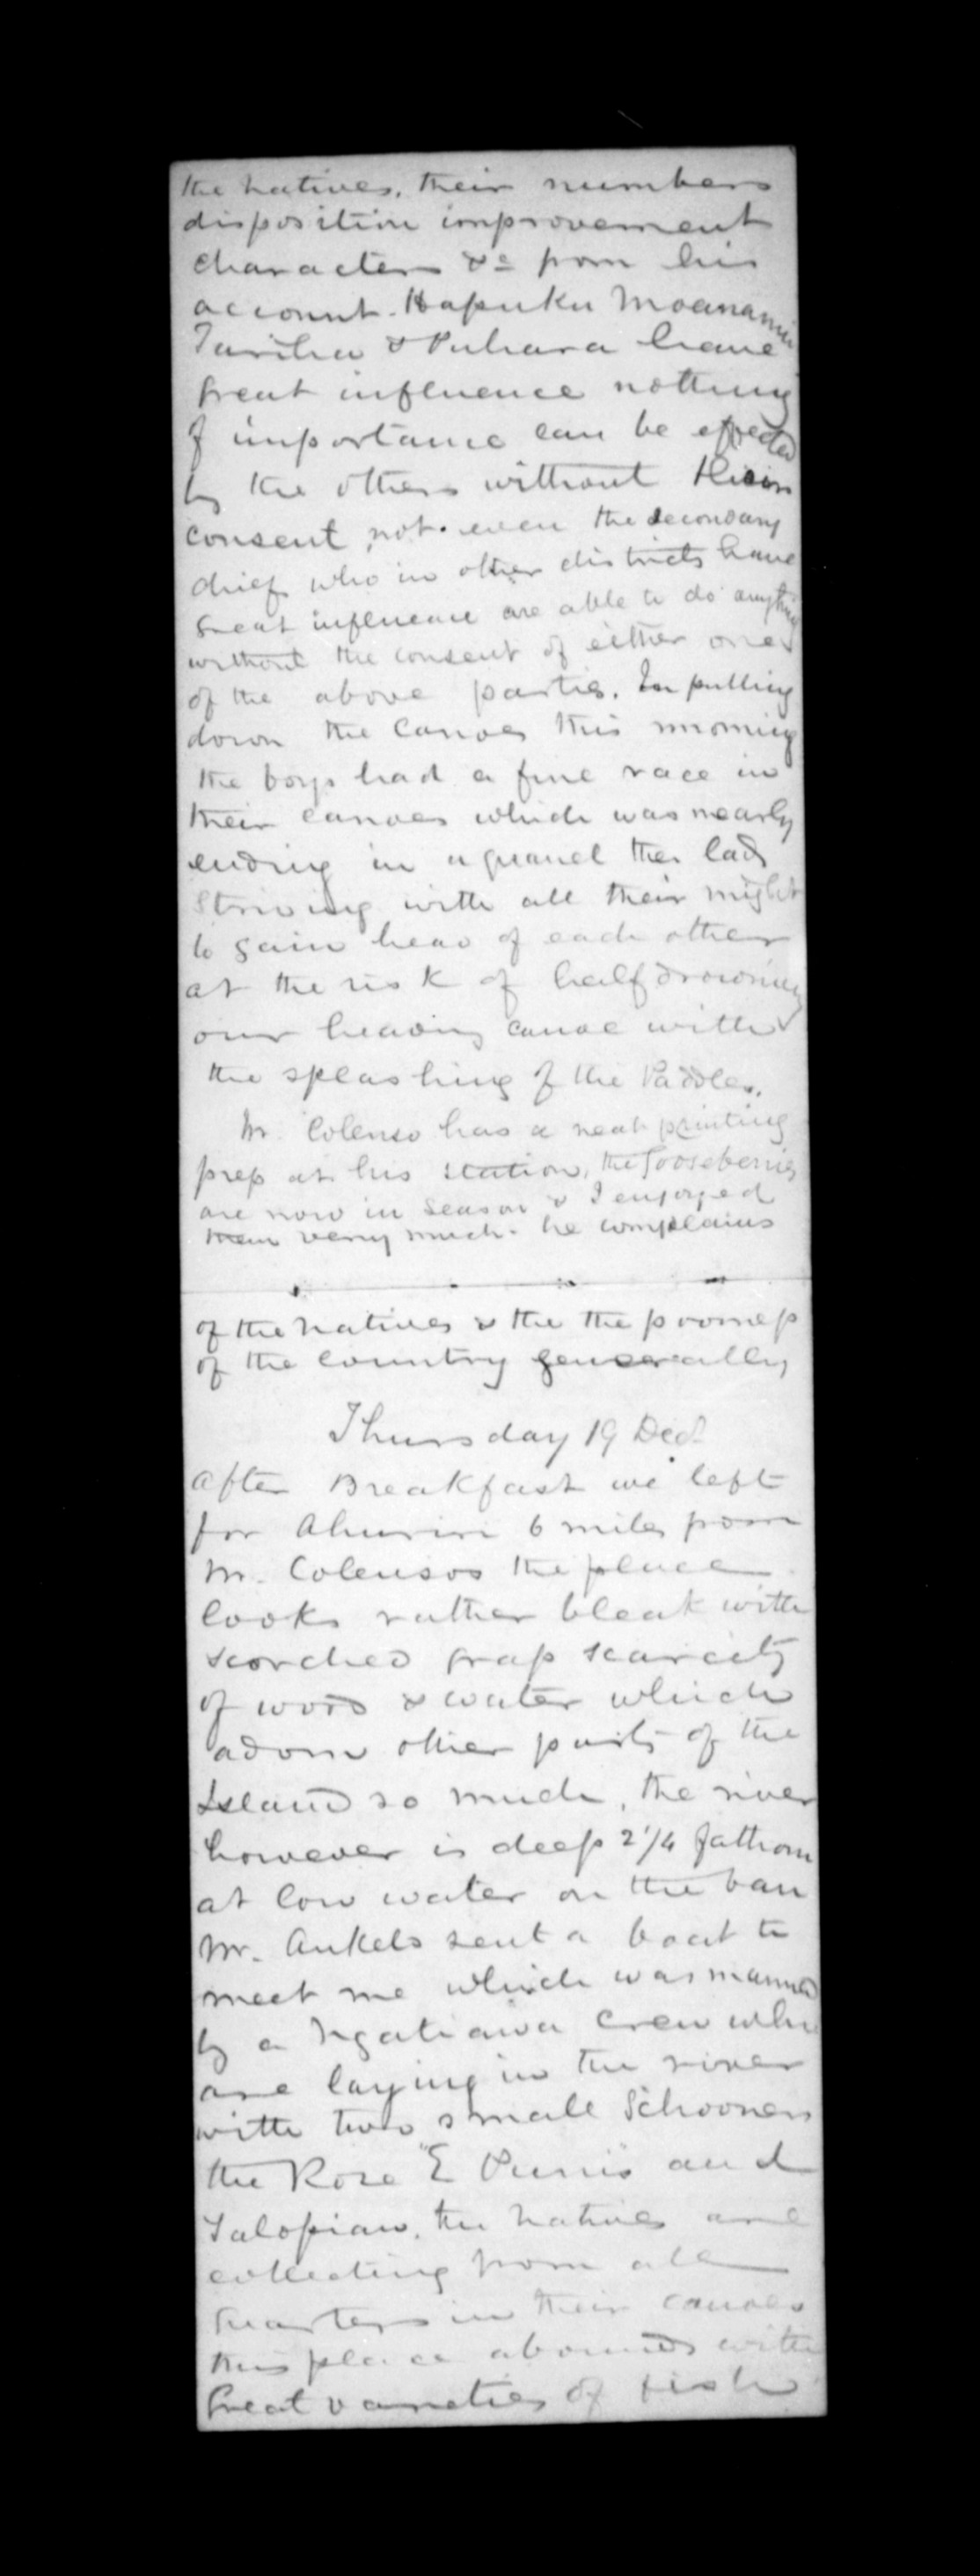 the natives, their numbers
disposition improvement
character &c from his
account. Hapuku Moananui
Tariha & Puhara have
great influence nothing
of importance can be effected
by the others without their
consent, not even the secondary
chiefs who in other districts have
great influence are able to do anything
without the consent of either one
of the above parties. In pulling
down the Canoes this morning
the boys had a fine race in
their canoes which was nearly
ending in a quarrel the lads
striving with all their might
to gain head of each other
at the risk of half drowning
our heading canoe with
the splashing of the Paddles.
Mr. Colenso has a neat printing
press at his station, the Gooseberries
are now in season & I enjoyed
them very much. he complains
of the natives & the the poorness
of the country generally
Thursday 19 Decr.
After Breakfast we left
for Ahuriri 6 miles from
Mr. Colensos the place
looks rather bleak with
scorched grass scarcity
of wood & water which
adorn other parts of the
Island so much, the river
however is deep 2 1/4 fathom
at low water on the bar
Mr. Ankels sent a boat to
meet me which was manned
by a Ngatiawa crew who
are laying in the river
with two small Schooners
the Rose "E Puni" and
Salopian. the Natives are
collecting from all
quarters in their canoes
this place abounds with
Great varieties of fish